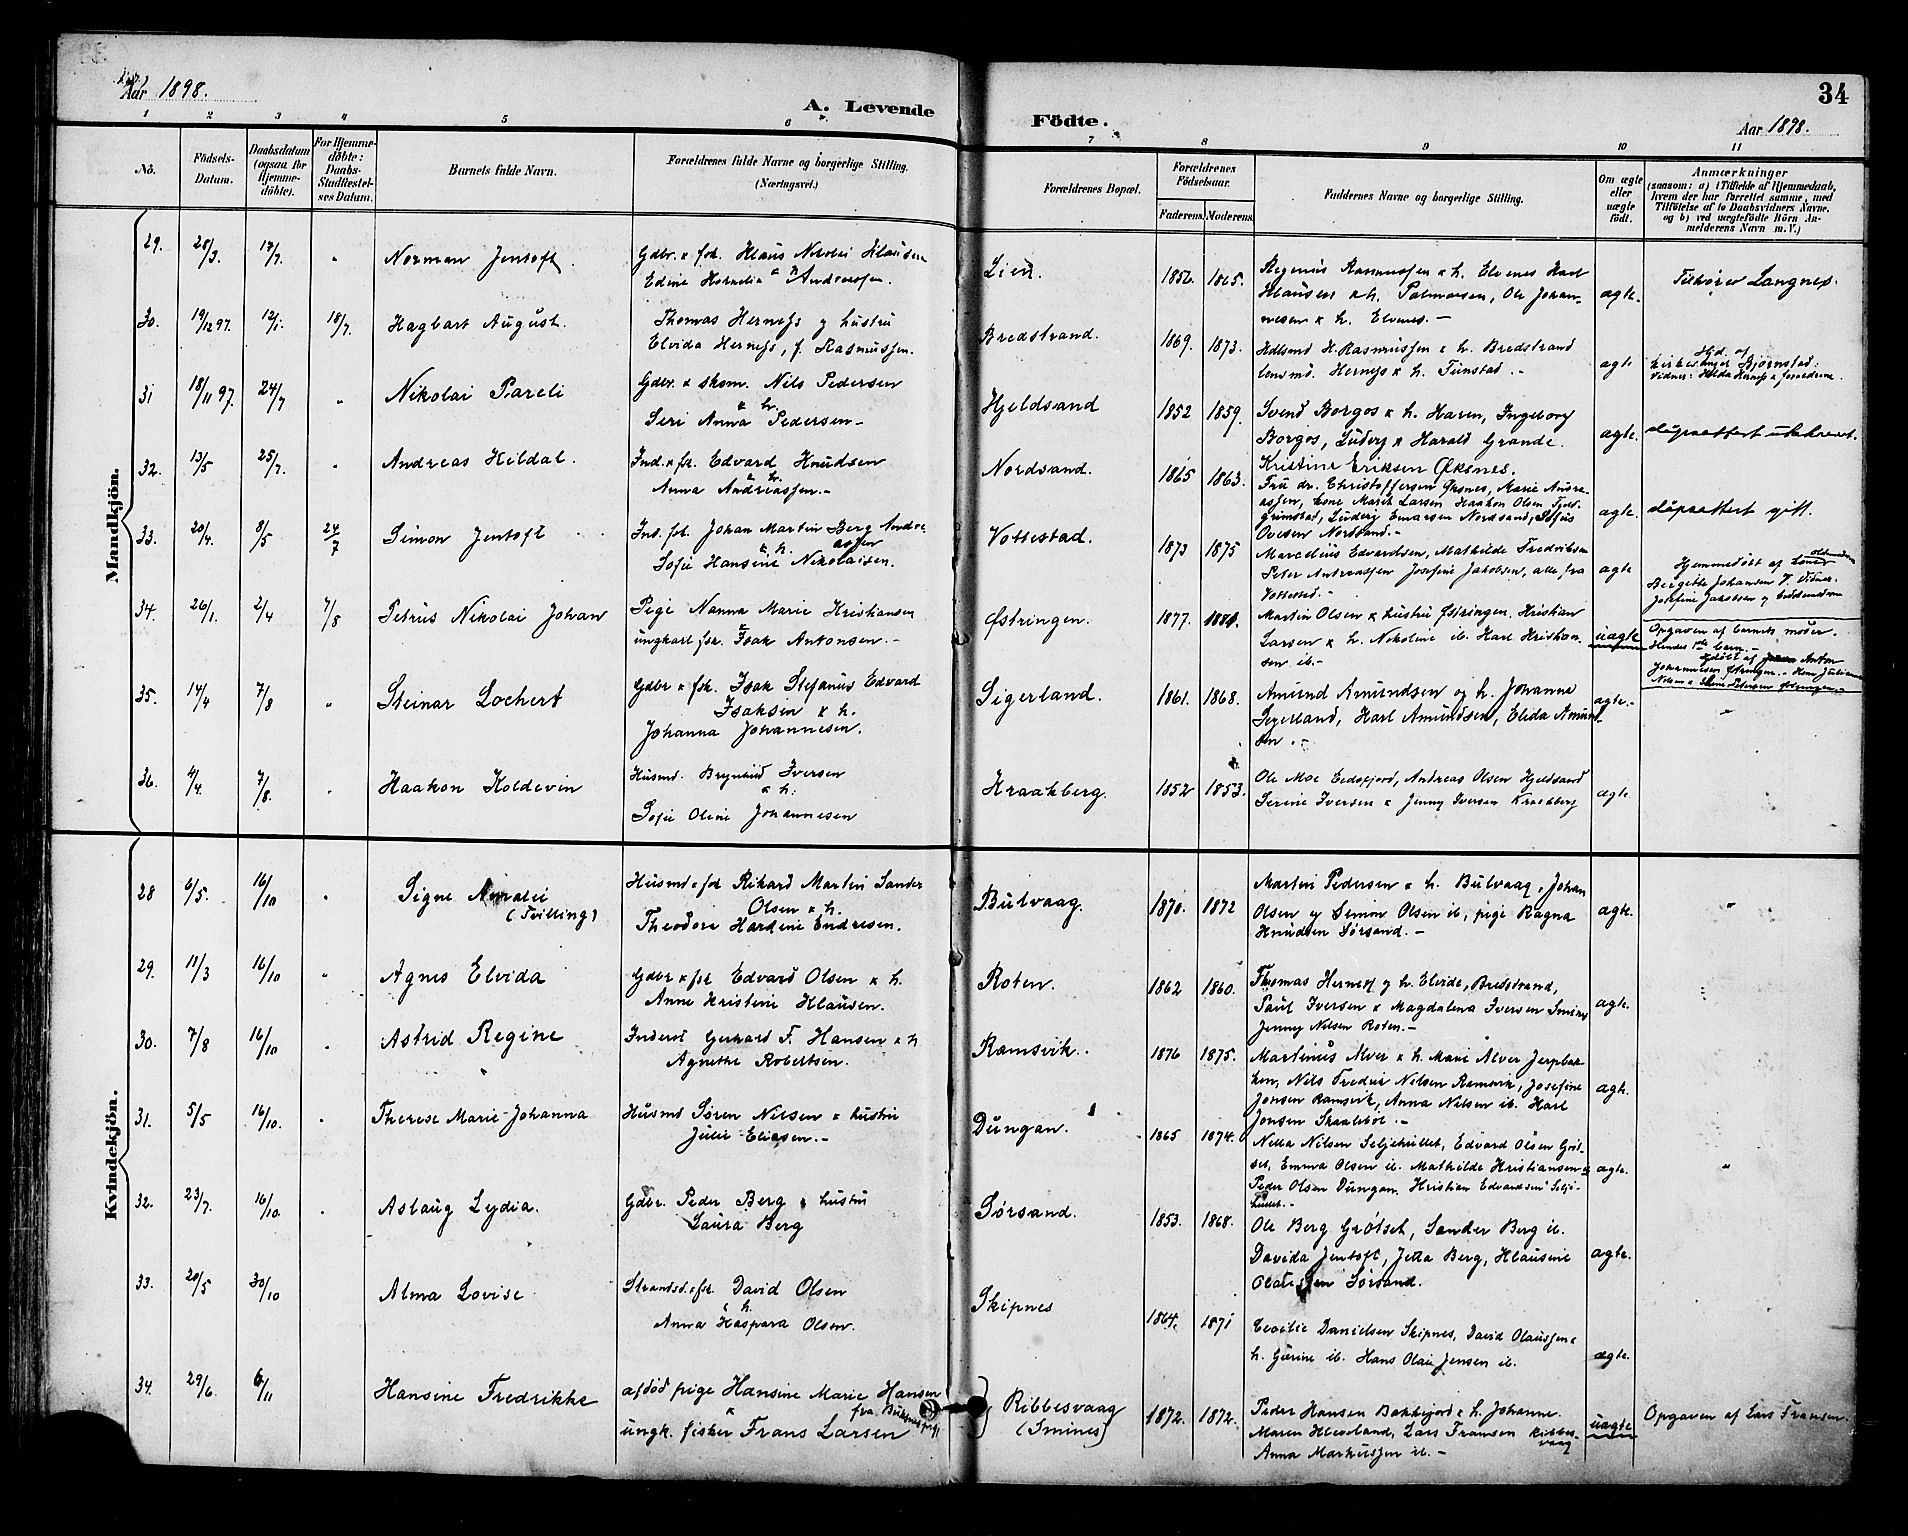 Aar 1898.
A. Levende
Födte.
34
Aar 1898.
1 2 3 4 5 6 7 8 9 10 11
No.
Födsels-
Datum.
Daabsdatum
(ogsaa for
Hjemme-
döbte).
For Hjemme-
döbte:
Daabs-
Stadfæstel-
ses Datum.
Barnets fulde Navn.
Forældrenes fulde Navne og borgerlige Stilling.
(Næringsvei.)
Forældrenes Bopæl.
Forældrenes
Födselsaar.
Faderens. Moderens.
Faddernes Navne og borgerlige Stilling.
Om ægte
eller
uægte
födt.
Anmærkninger
(saasom: a) i Tilfælde af Hjemmedaab,
hvem der har forrettet samme, med
Tilföielse af to Daabsvidners Navne,
og b) ved uægtefödte Börn An-
melderens Navn m. V.)
Mandkjön.
29. 28/3 17/7 " Norman Jentoft.
Gdbr. & fsk. Klaus Nikolai Klausen
Edine Kornelia Andersen.
Lien. 1856. 1865.
Regenius Rasmussen & h. Elvenes Karl
Klausen & h. Palmersen, Ole Johan-
nesen & h. Elvenes. –
ægte. Tilhører Langnes.
30. 19/12 97. 12/1. 18/7. Hagbart August.
Thomas Herness og hustru
Elvida Herness, f. Rasmussen.
Bredstrand. 1869. 1873.
H. Rasmussen & h. Bredstrand
lensmd. Herness & h. Tunstad. –
ægte
Hjd. af
kirkesanger Bjørnstad.
Vidner: Hilda Herness & forældrene.
31 18/11 97. 24/7 " Nikolai Pareli
Gdbr. & skom. Nils Pedersen
& h.
Seri Anna Pedersen –
Hjeldsand 1852 1859.
Svend Borgos & h. Karen, Ingeborg
Borgos, Ludvig & Harald Grande.
ægte. daapsattest utskrevet.
32. 13/5 25/7. " Andreas Hildal.
Ind. & fsk. Edvard Knudsen
& h.
Anna Andreassen. –
Nordsand. 1865 1863.
Kristine Eriksen Øksnes.
Fru dr. Christoffersen Øksnes, Marie Andre-
assen, Larsen Haakon Olsen
grimstad, Ludvig Nordsand,
Ovesen Nordsand. –
ægte. daapsattest gitt.
33. 20/4. 8/5 24/7 Simon Jentoft
Ind. fsk. Johan Martin Berg Andre-
assen
& h.
Sofie Hansine Nikolaisen.
Vottestad. 1873 1875
Marcelius Edvardsen, Mathilde Fredriksen
Peter Andreassen Josefine Jakobsen, alle fra
Vottestad. –
ægte
Hjemmedøbt af
Bergette Johansen V. Vidner.
Josefine Jacobsen og
34. 26/1. 2/4 7/8 Petrus Nikolai Johan
Pige Nanna Marie Kristiansen
&
ungkarl fsk. Isak Antonsen. –
Østringen. 1877.
Martin Olsen & hustru Østringen, Kristian
Larsen & h. Nikoline ib. Karl Kristian-
sen ib. –
uægte
Opgaven af barnets moder.
Hendes 1ste barn. –
Hjdøbt af Anton
Johannesen
35. 14/4 7/8 " Steinar Lochert
Gdbr & fsk. Isak Stefanus Edvard
Isaksen & h.
Johanna Johannesen.
Sigerland. 1861. 1868.
Amund Amundsen og h. Johanna
Sigerland, Karl Amundsen, Elida Amund-
sen. –
ægte. – "
36. 4/4. 7/8. " Haakon Koldevin
Husmd. Brynhild Iversen
& h.
Sofie Oline Johannesen
Kraakberg. 1852 1853.
Ole Moe Eidsfjord, Andreas Olsen Hjeldsand
Serine Iversen & Jenny Iversen Kraakberg
ægte
Kvindekjön.
28 6/5. 16/10 " Signe Amalie
(Tvilling)
Husmd & fsk Rikard Martin Sander
Olsen & h.
Theodora Hardine Endresen.
Bulvaag. 1870. 1872
Martin Pedersen & h. Bulvaag, Johan
Olsen og Simon Olsen ib, pige Ragna
Knudsen Sørsand. –
ægte. "
29. 11/3 16/10 " Agnes Elvida
Gdbr & fsk Edvard Olsen & h.
Anne Kristine Klausen.
Roten. 1862 1860.
Thomas Herness og h. Elvide, Bredstrand,
Paul Iversen & Magdalena Iversen Smines
Jenny Nilsen Roten. –
ægte.
30. 7/8 16/10 " Astrid Regine
Inderst Gerhard F. Hansen & h
Agnethe Robertsen.
Ramsvik. 1876 1875.
Martinus Alver & h. Marie Alver Jerpbak-
ken, Nils Fredrik Nilsen Ramsvik, Josefine
Jensen Ramsvik, Anna Nilsen ib. Karl
Jensen Skaalebøl. –
ægte.
31. 5/5 16/10. " Therese Marie Johanna
Husmd Søren Nilsen & hustru
Julie Eliasen. –
Dungan. 1865 1874.
Nella Nilsen Seljehullet, Edvard Olsen Grøt-
set, Emma Olsen ib. Mathilde Kristiansen &
Peder Olsen Dungan. Kristian Edvardsen Selje-
hullet. –
ægte. "
32. 23/7. 16/10 " Aslaug Lydia.
Gdbr. Peder Berg & hustru
Laura Berg
Sørsand. 1853. 1868.
Ole Berg Grøtset, Sander Berg ib.
Davida Jentoft, Jetta Berg, Klausine
Olaissen Sørsand.
ægte.
33. 20/5 30/10 Alma Lovise.
Strandsd. & fsk. David Olsen
& h.
Anna Kaspara Olsen.
Skipnes 1864. 1871
Cecilie Danielsen Skipnes, David Olaussen &
h. Gurine ib. Hans Olai Jensen ib.
ægte.
34. 29/6. 6/11 Hansine Fredrikke
afdød pige Hansine Marie Hansen
&
ungk. fisker Frans Larsen
Ribbesvaag
(Smines)
1872. 1872.
Peder Hansen Bakkejord & h. Johanne.
Maren Kleveland, Lars Fransen Ribbes-
vaag
Anna Markussen ib. –
uægte Opgaven af Lars Fransen.